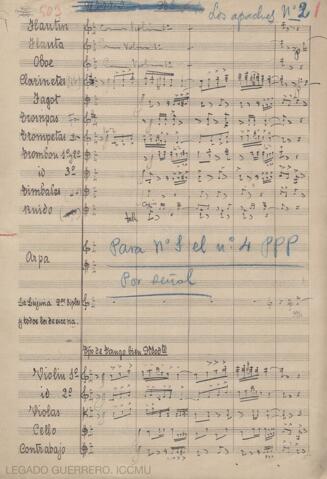 503
Los apaches Nº 2
Flautin
Flauta
Oboe
Clarinetes
Fagot
Trompas
Trompetas
Trombon 1º y 2º
id 3º
Timbales
Ruido
Arpa
Para Nº 1 el nº 4 ppp
Por señal
y todos los de escena.
Tpo de Tango bien Modto
Violin 1º
id 2º
Violas
Cello
Contrabajo
LEGADO GUERRERO. ICCMU